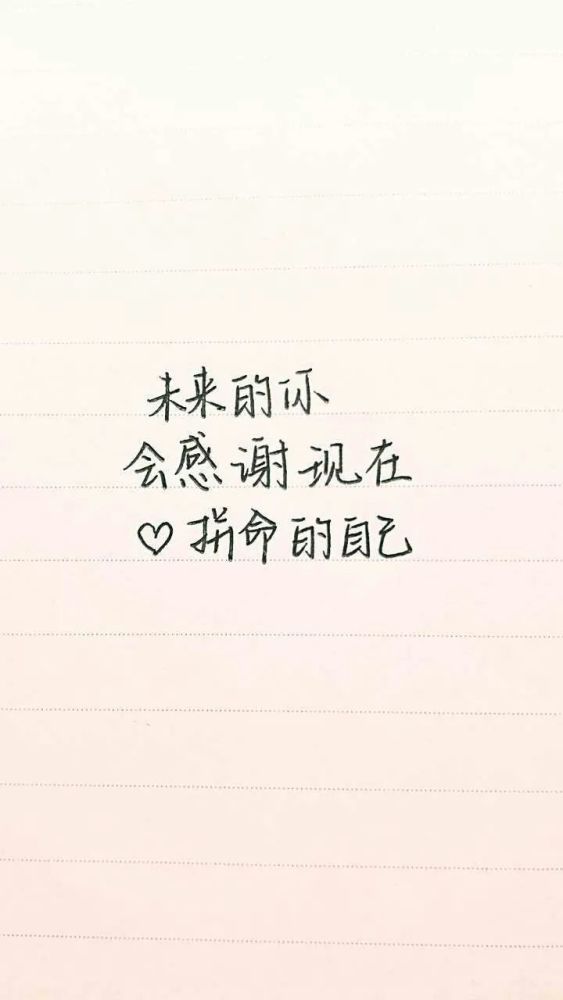 未来的你
会感谢现在
♡拼命的自己